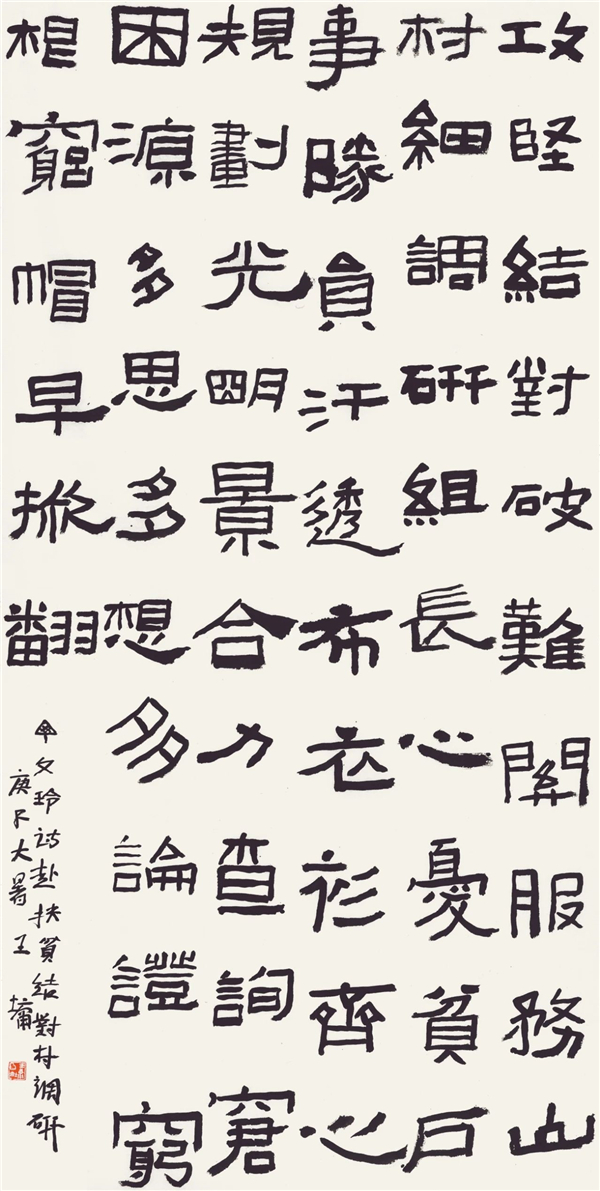 攻堅結對破難關服務山
村細調研組長心憂貧戶
事隊員汗透布衣衫齊心
規劃光明景合力查詢窘
困源多思多想多論證窮
根窮帽早掀翻
文玲詩赴扶貧結對村調研
庚子大暑王墉